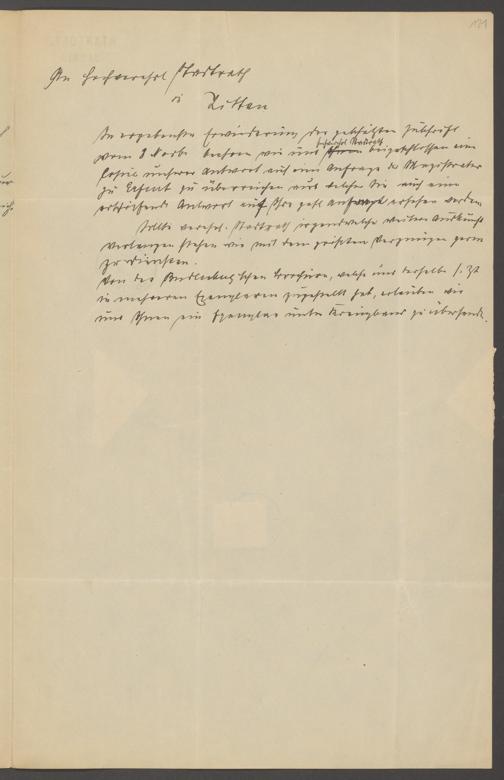 An hochverehrl. Stadtrath
in Zittau
In ergebenster Erwiederung der geschätzten Zuschrift
vom 8 Novbr. beehren wir uns hochverehrl. Stadtrath beigeschlossen eine
Copie unserer Antwort auf eine Anfrage des Magistrates
zu Erfurt zu überreichen aus welcher Sie auch eine
erschöpfende Antwort auf Ihre gefl. Anfrage ersehen werden.
Sollte verehrl. Stadtrath irgendwelche weitere Auskunft
verlangen stehen wir mit dem größten Vergnügen gerne
zu Diensten.
Von der Broschüre, welche uns derselbe s. Zt.
in mehreren Exemplaren zugestellt hat, erlauben wir
uns Ihnen ein Exemplar unter Kreuzband zu übersenden.